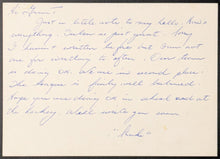 Hi
Just a little note to say hello. How's
everything. Fisher is just great. Sorry
I haven't written before but I'm not
one for writing to often. Our team
is doing ok. We are in second place.
The league is fairly well balanced.
Hope you are doing ok in school and at
the hockey. Well write you soon.
"Mike"